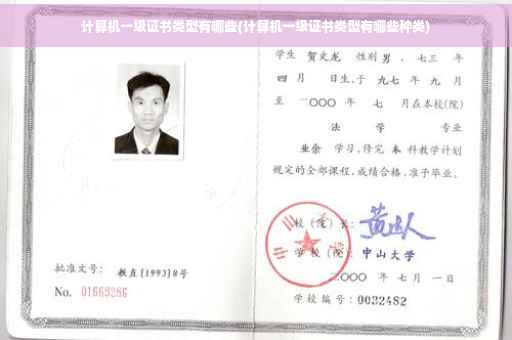 计算机一级证书类型有哪些(计算机一级证书类型有哪些种类)
学生 贺文龙 性别 男 、七三 年
四 月 日生,于 九七 年 九 月
至 二〇〇〇 年 七 月在本校(院)
法 学 专业
业余 学习,修完 本 科教学计划
规定的全部课程,成绩合格,准予毕业。
校(院)长:
学校(院): 中山大学
二〇〇〇 年 七 月 一 日
学校编号: 0032482
批准文号: 教直(1993)8号
No. 01669286